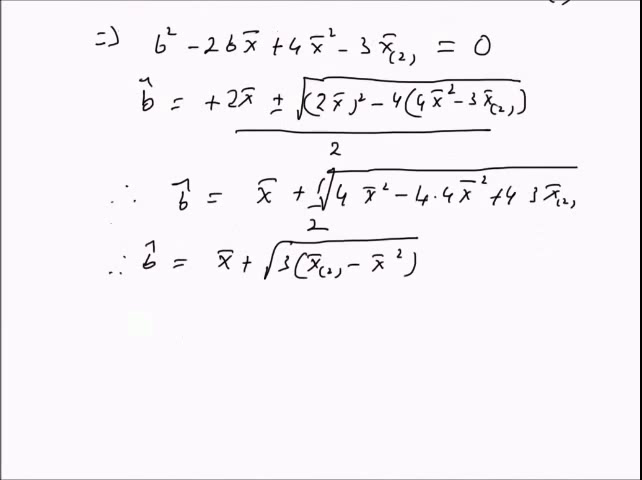 => b² - 2b x̄ + 4x̄² - 3x̄₍₂₎ = 0
b̂ = +2x̄ ± √((2x̄)² - 4(4x̄² - 3x̄₍₂₎)) / 2
∴ b̂ = x̄ + ½√(4x̄² - 4·4x̄² + 4 3x̄₍₂₎)
∴ b̂ = x̄ + √(3(x̄₍₂₎ - x̄²))